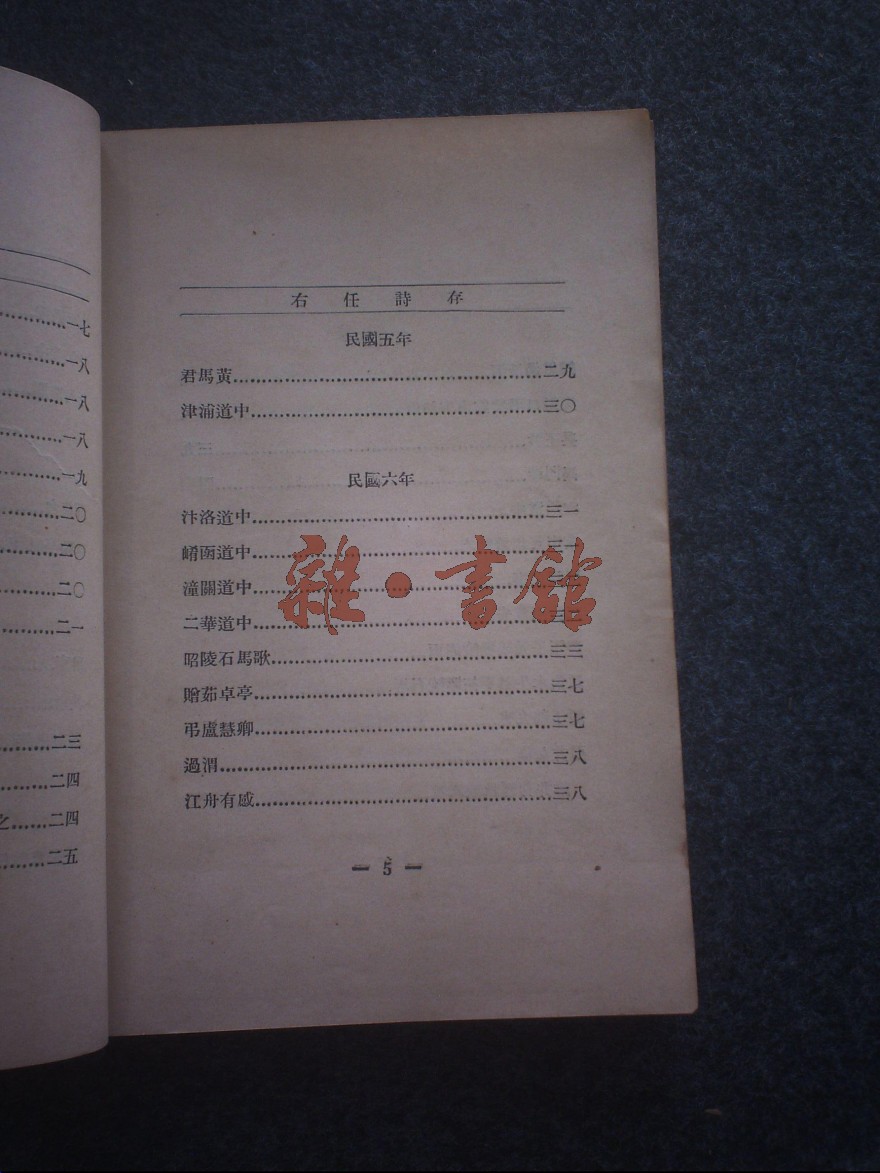 ……一七
……一八
……一八
……一八
……一九
……二〇
……二〇
……二〇
……二一
……二三
……二四
之……二四
……二五
右任詩存
民國五年
君馬黃……二九
津浦道中……三〇
民國六年
汴洛道中……三一
崤函道中……三一
潼關道中……
二華道中……
昭陵石馬歌……三三
贈茹卓亭……三七
弔盧慧卿……三七
過渭……三八
江舟有感……三八
— 5 —
雜·書館